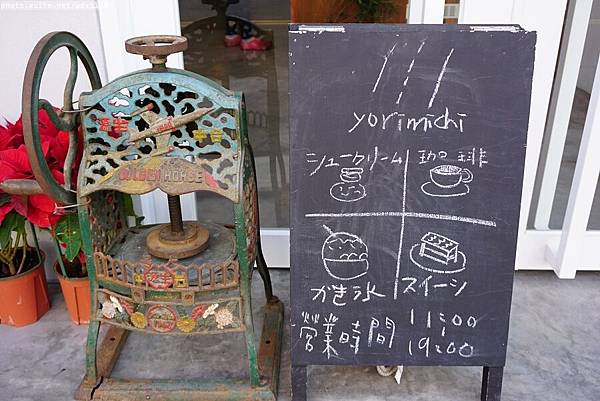 yorimichi
シュークリーム
珈琲
かき氷
スイーツ
営業時間
11:00
19:00
HORSE